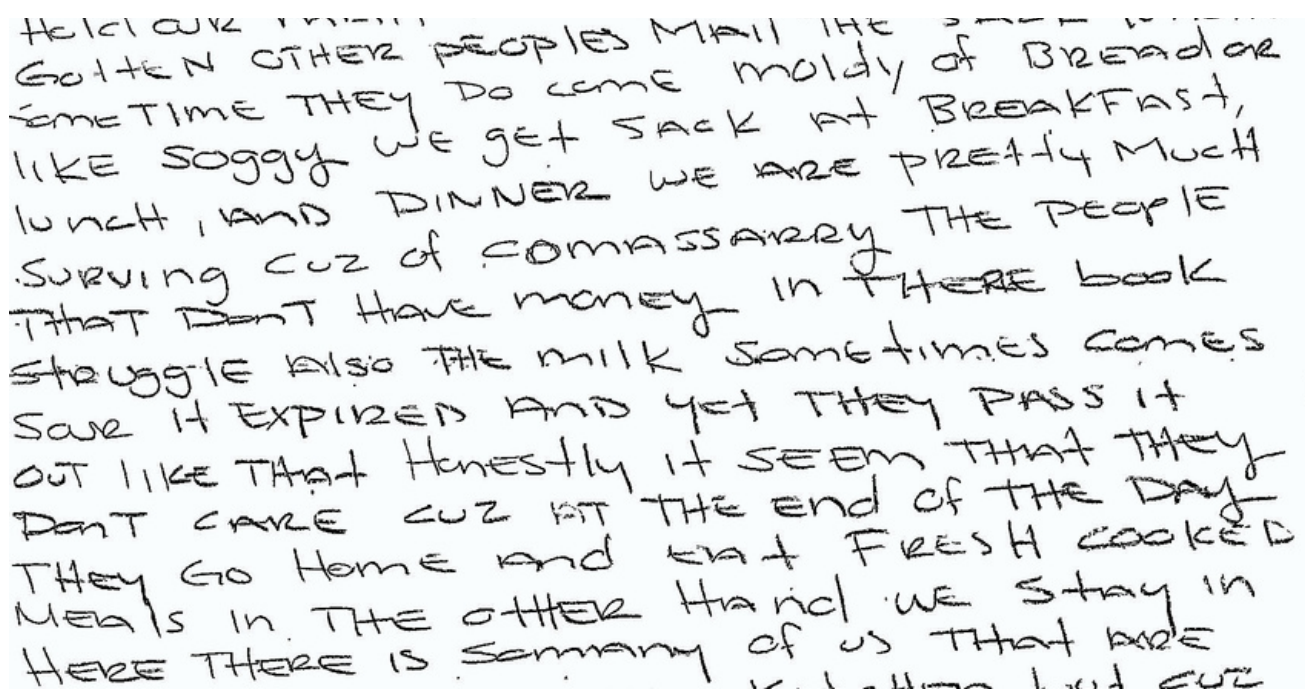 Hold our
GOTTEN OTHER PEOPlES MAIl THE SACK
SOMETIME THEY DO COME moldy of BREAD OR
lIKE SOGGY WE GET SACK AT BREAKFAST,
lunCH, AND DINNER WE ARE PRETTY MucH
SURVING CUZ of COMASSARRY THE PEOPlE
THAT DonT HAVE monEY in THERE book
StRuGGlE Also THE milk SomEtimES ComES
SouR It EXPIRED AND yEt THEY PASS it
OUT lIKE THAt HonEStly it SEEm THAt THEY
DonT CARE CUZ AT THE End of THE DAY
THEY GO HomE And EAt FRESH COOKED
MEAls In THE otHER HAnd WE StAy in
HERE THERE IS SomAny of US THAt ARE
CUZ